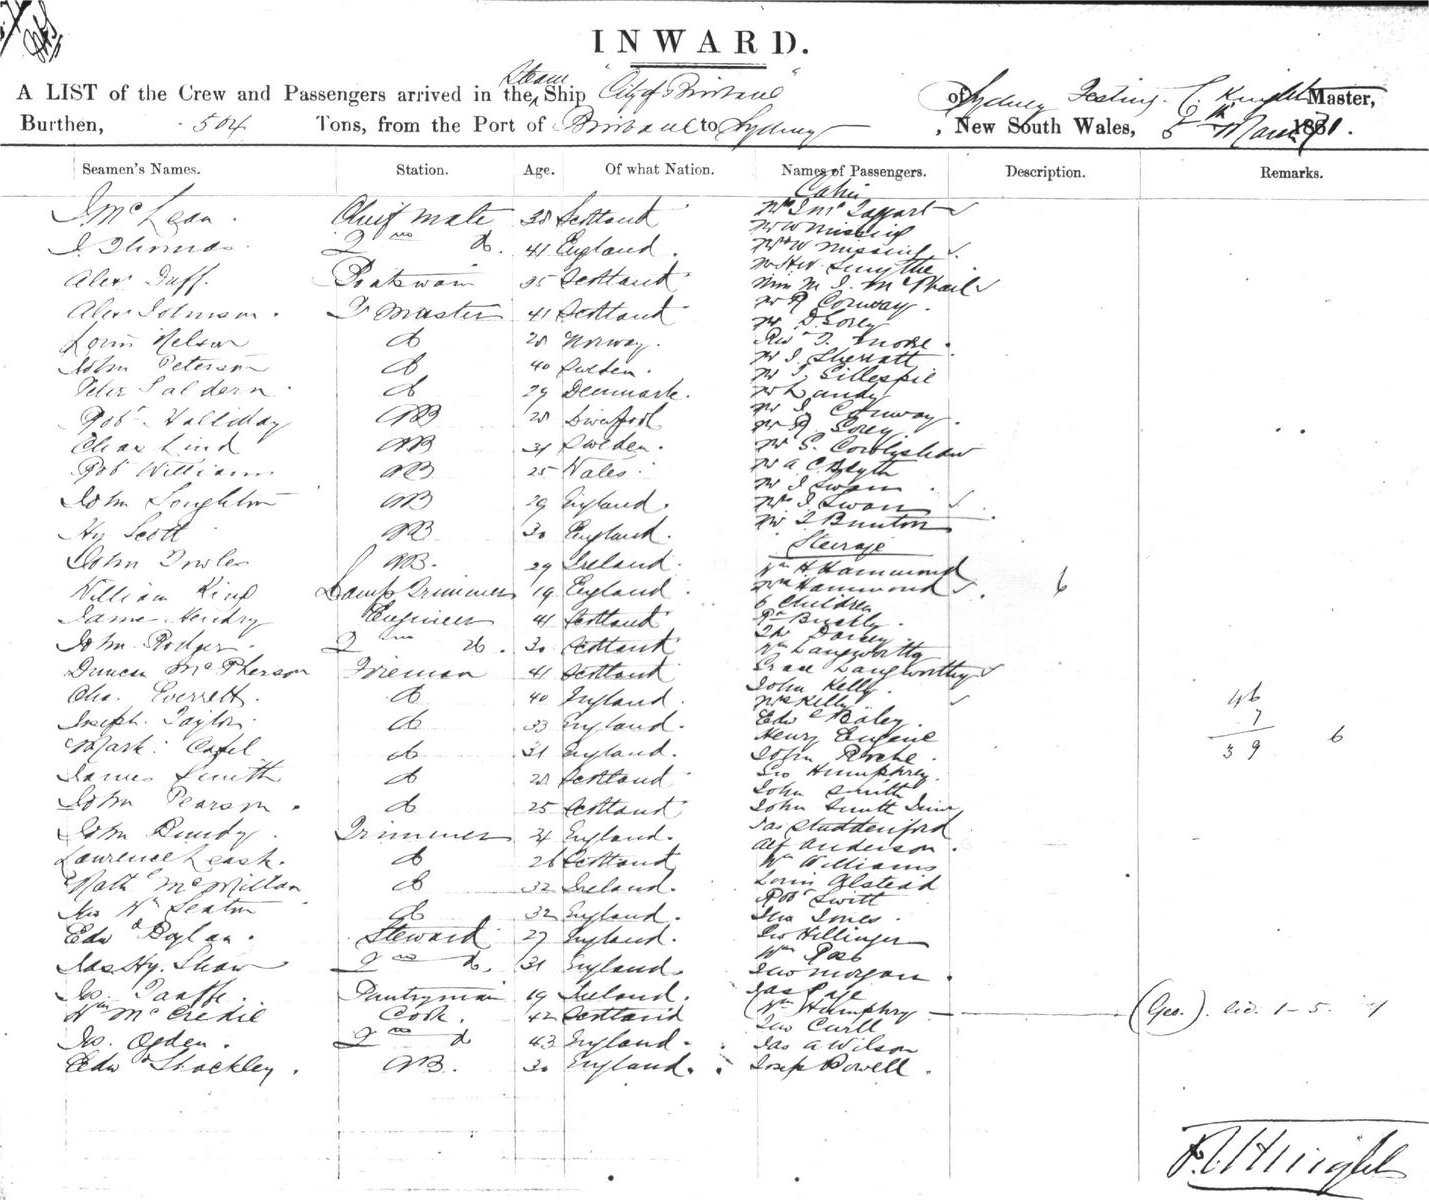 INWARD.
A LIST of the Crew and Passengers arrived in the Steam Ship "City of Brisbane" of Sydney Master,
Burthen, 504 Tons, from the Port of Brisbane to Sydney, New South Wales, 5th March 1881.
Seamen's Names. Station. Age. Of what Nation. Names of Passengers. Description. Remarks.
Cabin
J McLean. Chief Mate 38 Scotland
J. Thomas 2nd do. 41 England.
Mr W Missing
Alex Duff. Boatswain 35 Scotland
Mr Hw. Smythe
Miss M. J. McPhail
Alex Johnson. Master 41 Scotland
Mr R Conway.
Mr D. Sorey
Louis Nelson do 28 Norway.
Rev T. Moore.
John Peterson do 40 Sweden.
Mr J. Sherratt
Mr J. Gillespie
Peter Saldern. do 29 Denmark.
Mr Landy
Robt Halliday AB 28 Liverpool
Mr J. Conway.
Mr R. Sorey
Chas Lind AB 31 Sweden.
Mr S. Cowlishaw
Robt Williams AB 25 Wales.
Mr A. C. Blyth
Mr J Swan.
John Loughton AB 29 England.
Mrs J. Swan
Mr J Bunton
Hy Scott AB 30 England.
Steerage
John Fowler AB. 29 Ireland.
Wm H Hammond
William King Lamp Trimmer 19 England
Mrs Hammond 6
6 Children
James Hendry Engineer 41 Scotland
John Rodger. 2nd do. 30 Scotland
Wm Langworthy
Duncan McPherson Fireman 41 Scotland
Grace Langworthy
John Kelly.
Chas. Everrett. do 40 England.
Mrs Kelly
46
Joseph. Taylor do 33 England.
Edwd Baley.
7
Henry Eugene
39 6
Mark. Catel do 31 England.
John Roche.
James Smith do 28 Scotland
Geo Humphrey.
John Smith
John Pearson. do 25 Scotland
John Smith Junr
John Bundy. Trimmer 21 England.
Jas Studdeniford
Alf Anderson.
Lawrence Leash. do 26 Scotland
Wm Williams
Nathl McMillan do 32 Ireland.
Louis Olstead
Robt Swift
Jno Wm Seaton do 32 England.
Jno Jones.
Edwd Boylan. Steward 27 England.
Geo Hillinger
Wm Ross
Jas Hy. Shaw 2nd do. 31 England.
Jno Morgan.
Js Taaffe. Pantryman 19 Ireland.
Jas Page
Wm McCredie Cook. 42 Scotland
Wm Humphry. (Geo.)
Jno Curll
Js. Ogden. 2nd do 43 England.
Jas A Wilson
Edwd Shockley. AB. 30 England.
Joseph Powell.